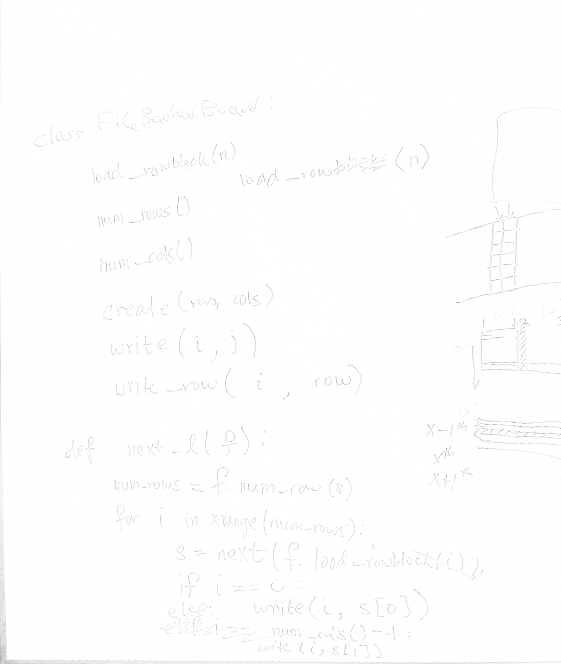 class FileBackedBoard:
load_rowblock(n)
load_row (n)
num_rows()
num_cols()
create (rows, cols)
write (i, j)
write_row( i , row)
def next_l(f):
num_rows = f. num_row (s)
for i in xrange(num_rows):
s = next (f. load_rowblock(i),
if i == 0 :
else: write(i, s[0])
num_cols() - 1:
write (i, s[i])
1 2
X-1th
Xth
X+1th